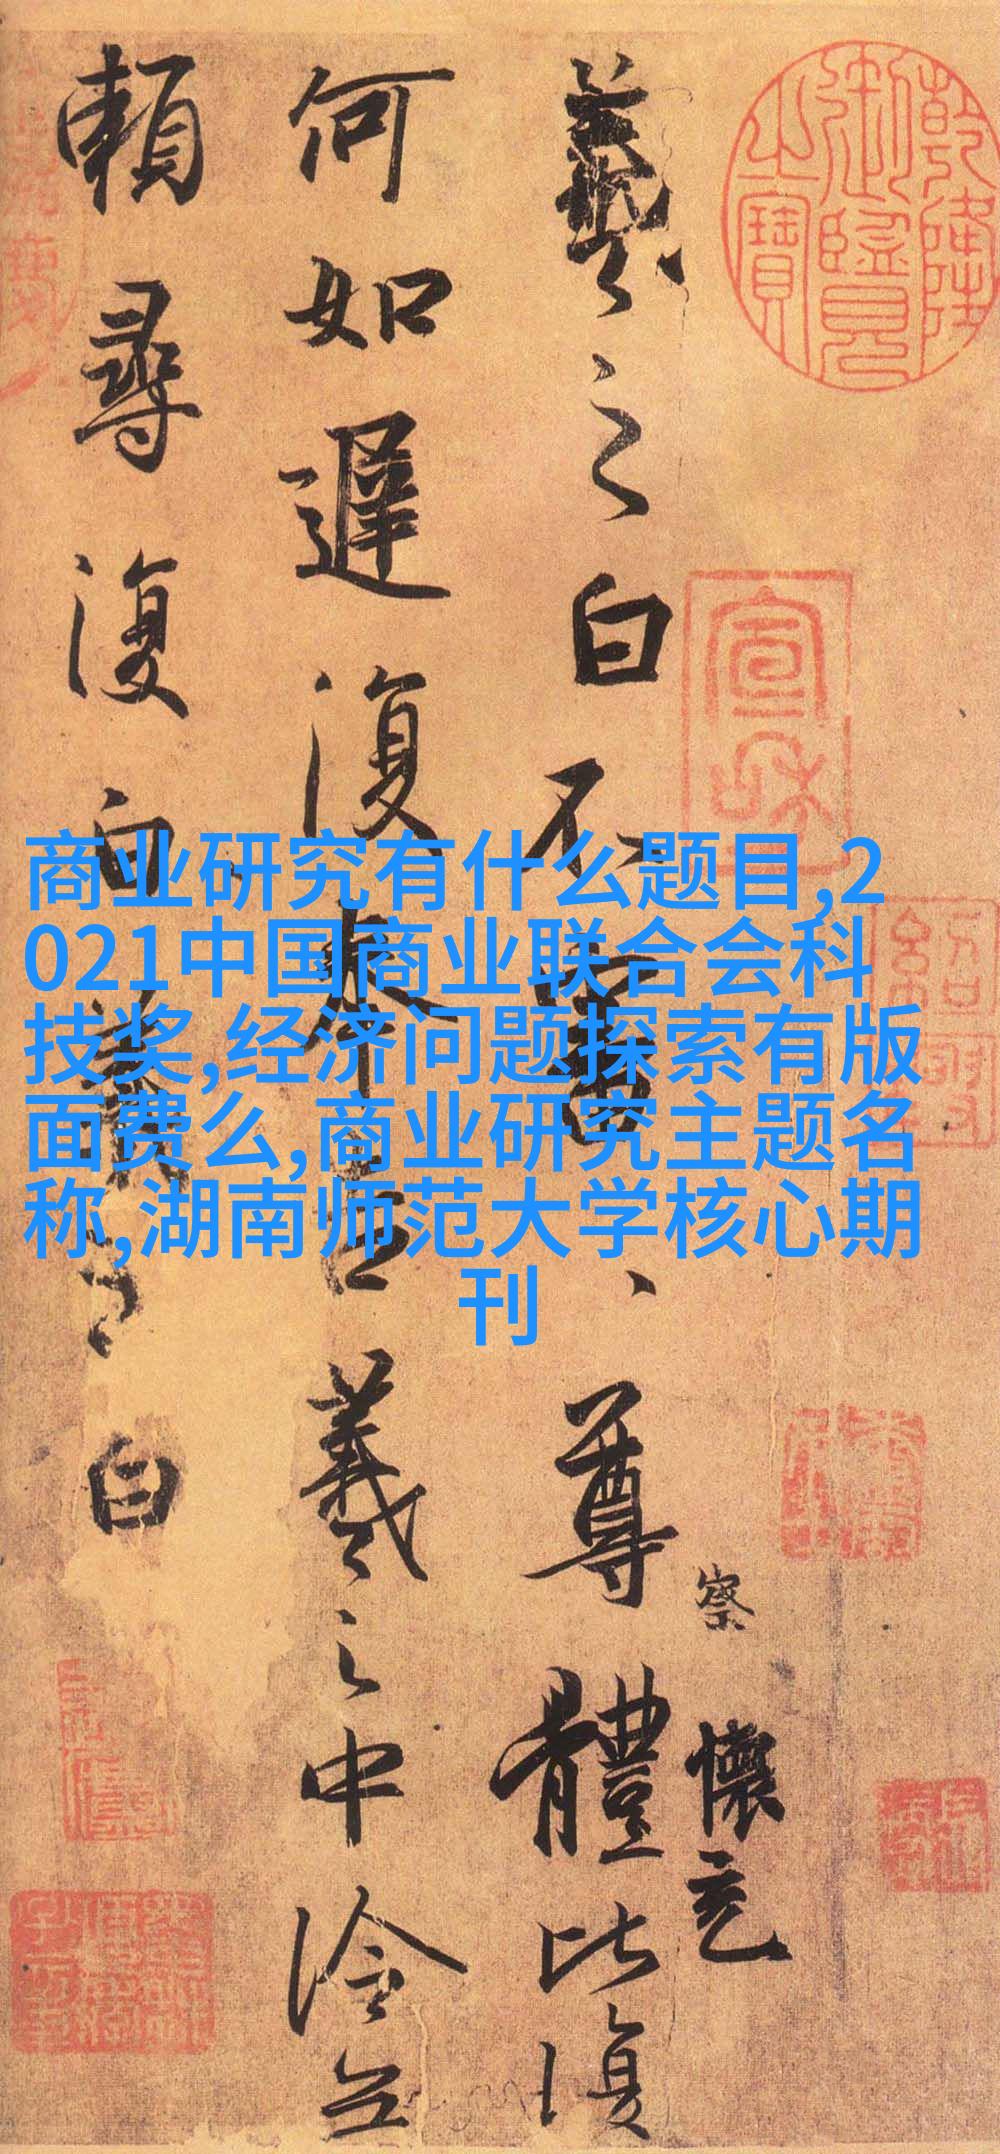 商业研究有什么题目,2
021中国商业联合会科
技奖,经济问题探索有版
面费么,商业研究主题名
称,湖南师范大学核心期
刊
乾隆
御覽
之寶
宣和
察
懷充
羲之白不審尊體比復
何如遲復奉告羲之中冷无
賴尋復白羲之白